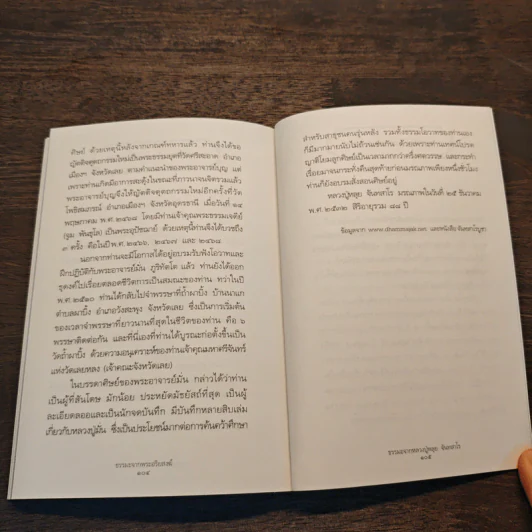 ศิษย์ ด้วยเหตุนี้หลังจากเกณฑ์ทหารแล้ว ท่านจึงได้ขอ
ญัตติจตุตถกรรมใหม่เป็นพระธรรมยุตที่วัดศรีสะอาด อำเภอ
เมืองฯ จังหวัดเลย ตามคำแนะนำของพระอาจารย์บุญ แต่
เพราะท่านเกิดมีอาการสะดุ้งในขณะที่ภาวนาจนจิตรวมแล้ว
พระอาจารย์บุญจึงให้ญัตติจตุตถกรรมใหม่อีกครั้งที่วัด
โพธิสมภรณ์ อำเภอเมืองฯ จังหวัดอุดรธานี เมื่อวันที่ ๑๔
พฤษภาคม พ.ศ. ๒๔๖๘ โดยมีท่านเจ้าคุณพระธรรมเจดีย์
(จูม พันธุโล) เป็นพระอุปัชฌาย์ ด้วยเหตุนี้ท่านจึงได้บวชถึง
๓ ครั้ง คือในปี พ.ศ. ๒๔๖๖, ๒๔๖๗ และ ๒๔๖๘
นอกจากท่านจะมีโอกาสได้อยู่อบรมรับฟังโอวาทและ
ฝึกปฏิบัติกับพระอาจารย์มั่น ภูริทัตโต แล้ว ท่านยังได้ออก
ธุดงค์ไปเรื่อยตลอดชีวิตการเป็นสมณะของท่าน ทว่าในปี
พ.ศ. ๒๕๑๐ ท่านได้กลับไปจำพรรษาที่ถ้ำผาบิ้ง บ้านนาแก
ตำบลผาบิ้ง อำเภอวังสะพุง จังหวัดเลย ซึ่งเป็นการเริ่มต้น
ของเวลาจำพรรษาที่ยาวนานที่สุดในชีวิตของท่าน คือ ๖
พรรษาติดต่อกัน และที่นี่เองที่ท่านได้บูรณะก่อตั้งขึ้นเป็น
วัดถ้ำผาบิ้ง ด้วยความอนุเคราะห์ของท่านเจ้าคุณมหาศรีจันทร์
แห่งวัดเลยหลง (เจ้าคณะจังหวัดเลย)
ในบรรดาศิษย์ของพระอาจารย์มั่น กล่าวได้ว่าท่าน
เป็นผู้ที่สันโดษ มักน้อย ประหยัดมัธยัสถ์ที่สุด เป็นผู้
ละเอียดลออและเป็นนักจดบันทึก มีบันทึกหลายสิบเล่ม
เกี่ยวกับหลวงปู่มั่น ซึ่งเป็นประโยชน์มากต่อการค้นคว้าศึกษา
ธรรมะจากพระอริยสงฆ์
๑๐๔
สำหรับสาธุชนคนรุ่นหลัง รวมทั้งธรรมโอวาทของท่านเอง
ก็มีมากมายนับไม่ถ้วนเช่นกัน ด้วยเพราะท่านเทศน์โปรด
ญาติโยมลูกศิษย์เป็นเวลามากกว่าครึ่งศตวรรษ และกระทำ
เรื่อยมาจนกระทั่งคืนสุดท้ายก่อนมรณภาพเพียงหนึ่งชั่วโมง
ท่านก็ยังอบรมสั่งสอนศิษย์อยู่
หลวงปู่หลุย จันทสาโร มรณภาพในวันที่ ๒๕ ธันวาคม
พ.ศ. ๒๕๓๒ สิริอายุรวม ๘๘ ปี
ข้อมูลจาก และหนังสือ จันทสาโรบูชา
ธรรมะจากหลวงปู่หลุย จันทสาโร
๑๐๕